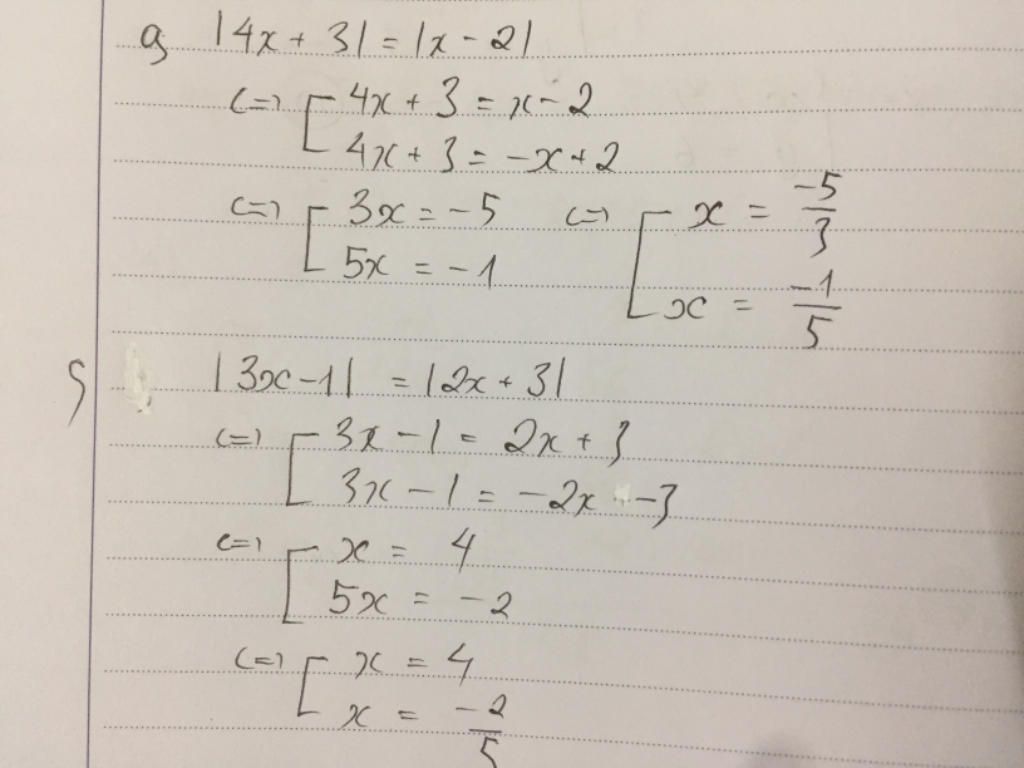 a, |4x + 3| = |x - 2|
<=> [ 4x + 3 = x - 2
4x + 3 = -x + 2
<=> [ 3x = -5 <=> [ x = -5/3
5x = -1 x = -1/5
|3x - 1| = |2x + 3|
<=> [ 3x - 1 = 2x + 3
3x - 1 = -2x - 3
<=> [ x = 4
5x = -2
<=> [ x = 4
x = -2/5